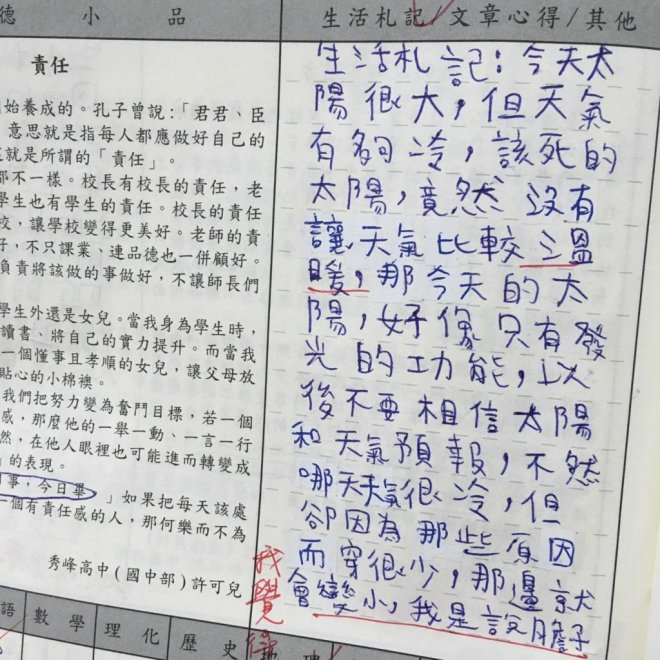 德 小 品
責任
始養成的。孔子曾說:「君君、臣
意思就是指每人都應做好自己的
就是所謂的「責任」。
都不一樣。校長有校長的責任,老
學生也有學生的責任。校長的責任
校,讓學校變得更美好。老師的責
好,不只課業、連品德也一併顧好。
負責將該做的事做好,不讓師長們
學生外還是女兒。當我身為學生時,
讀書、將自己的實力提升。而當我
一個懂事且孝順的女兒,讓父母放
貼心的小棉襖。
我們把努力變為奮鬥目標,若一個
感,那麼他的一舉一動、一言一行
然,在他人眼裡也可能進而轉變成
」的表現。
事,今日畢 」如果把每天該處
一個有責任感的人,那何樂而不為
秀峰高中(國中部)許可兒
生活札記/文章心得/其他
生活札記:今天太
陽很大,但天氣
有夠冷,該死的
太陽,竟然沒有
讓天氣比較溫
暖,那今天的太
陽,好像只有發
光的功能,以
後不要相信太陽
和天氣預報,不然
哪天天氣很冷,但
卻因為那些原因
而穿很少,那邊就
會變小,我是說膽子
我覺得
語 數學 理化 歷史 地理